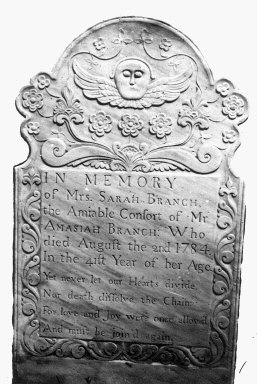 IN MEMORY
of Mrs. SARAH BRANCH,
the Amiable Consort of Mr
AMASIAH BRANCH: Who
died Auguſt the 2nd 1784
In the 41ſt Year of her Age
Yet never let our Hearts divide
Nor death diſſolve the Chain:
For love and Joy were once allow'd
And muſt be join'd again.